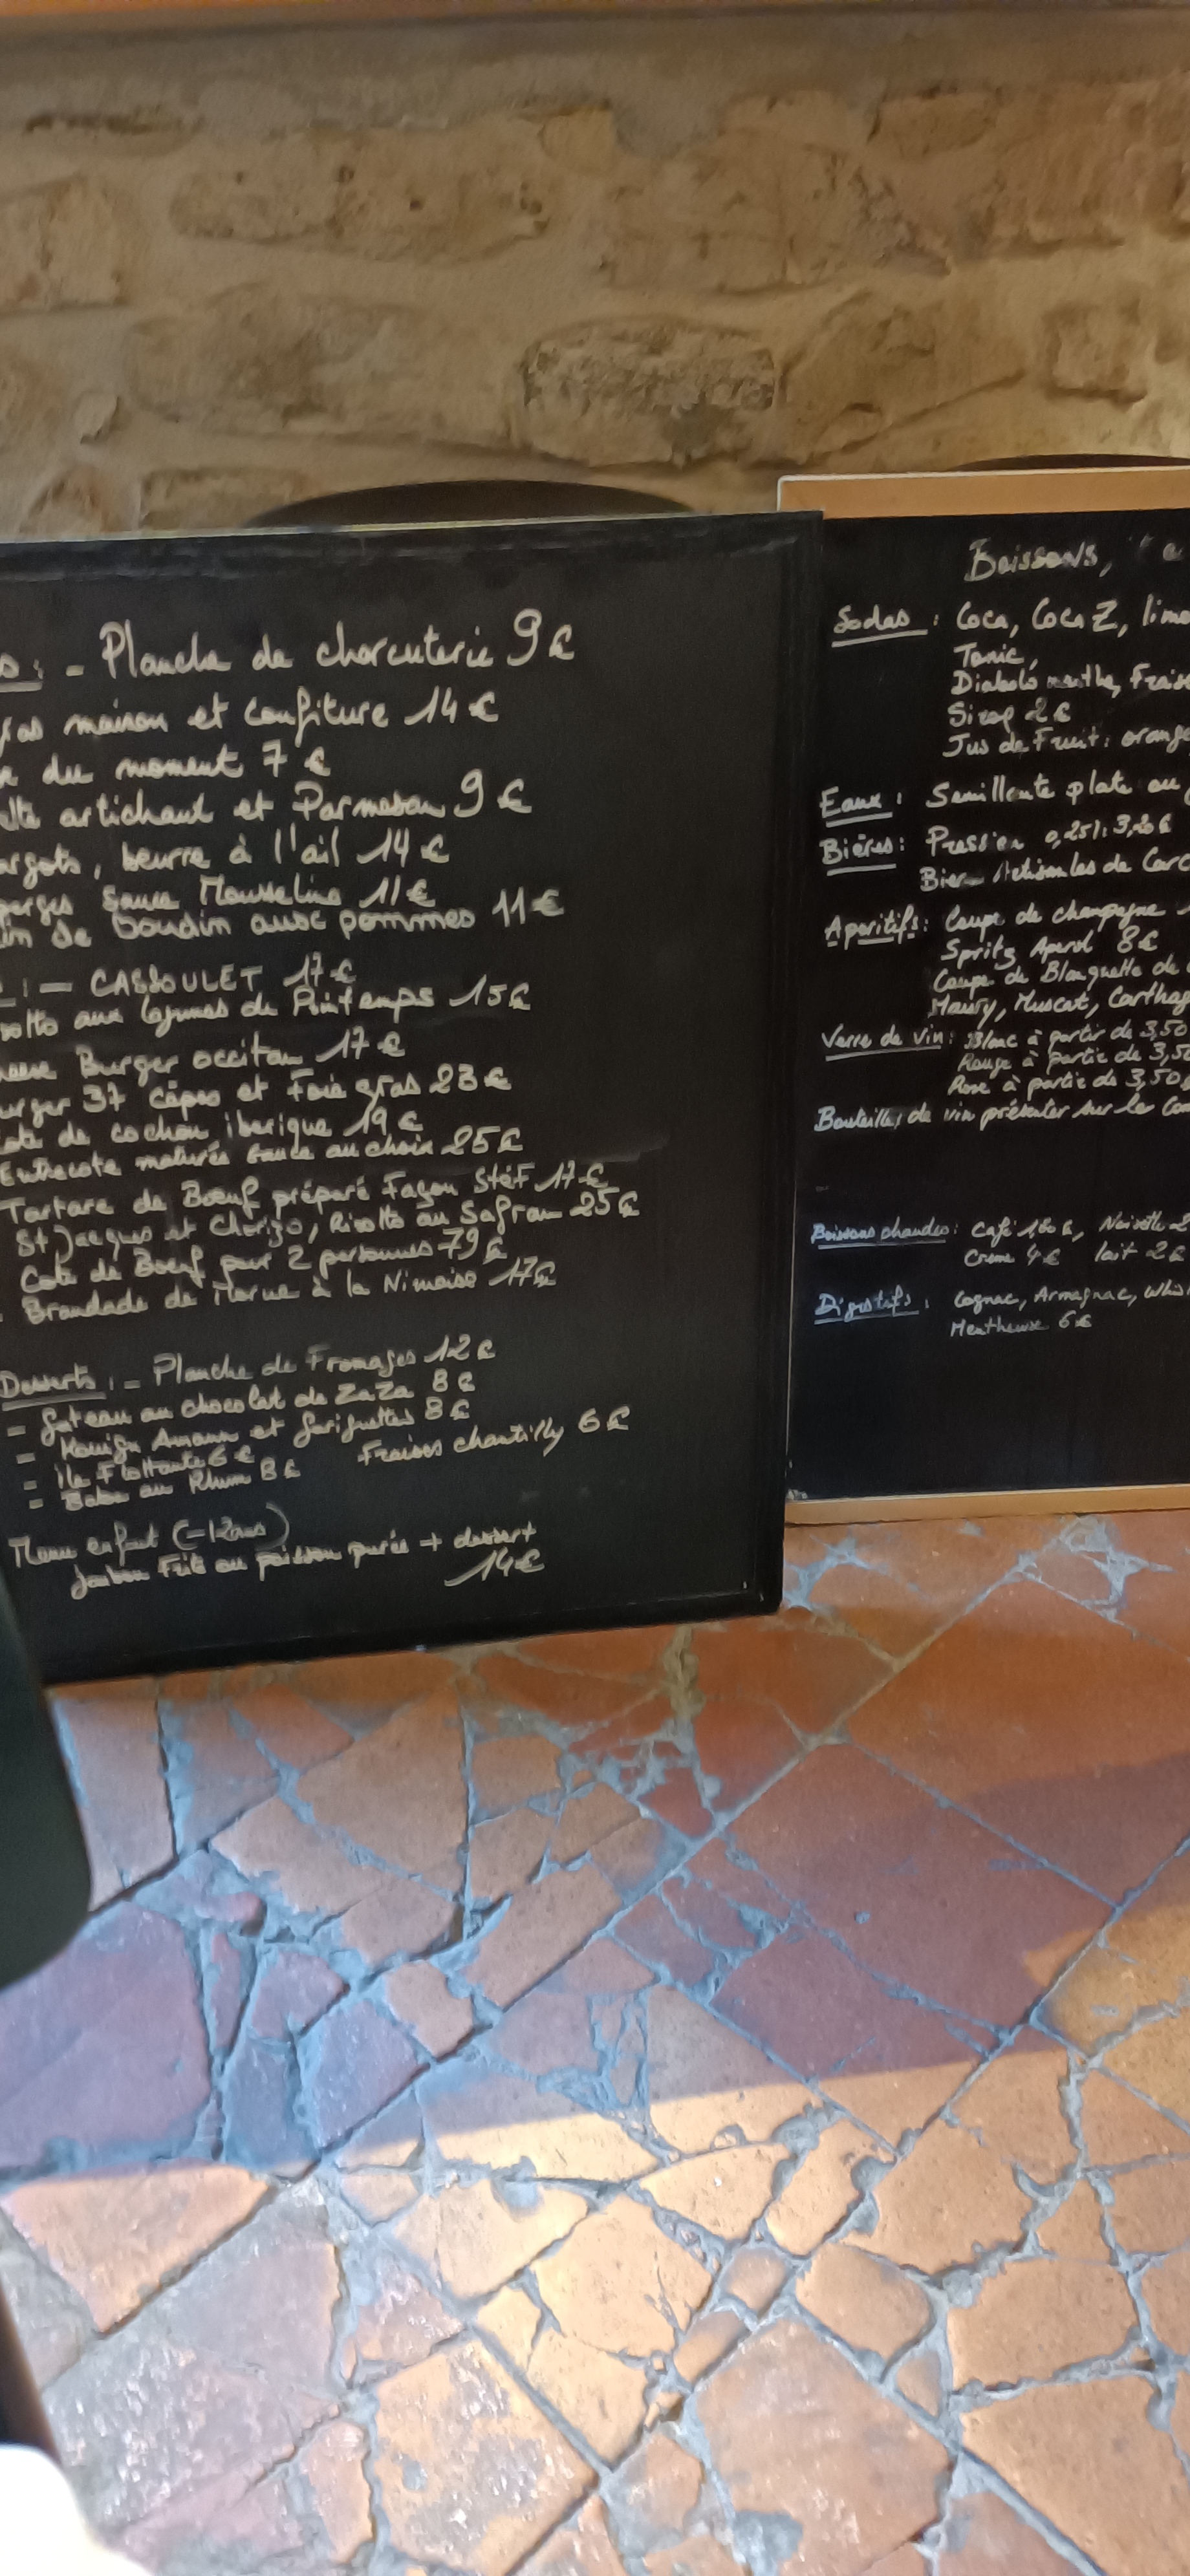 s : - Planche de charcuterie 9€
gras maison et confiture 14€
du moment 7€
artichaut et Parmesan 9€
argots, beurre à l'ail 14€
perges sauce Mousseline 11€
in de boudin aux pommes 11€
: - CASSOULET 17€
sotto aux légumes de Printemps 15€
Burger occitan 17€
urger 37 câpes et foie gras 23€
de cochon iberique 19€
Entrecote maturés sauce au choix 25€
Tartare de Bœuf préparé Façon Stéf 17€
St Jacques et Chorizo, Risotto au Safran 25€
Cote de Bœuf pour 2 personnes 79€
Brandade de Morue à la Nimoise 17€
Desserts : - Planche de Fromages 12€
- Gateau au chocolat de ZaZa 8€
- Kouign Amann et Gariguettes 8€
- Ile Flottante 6€ Fraises chantilly 6€
- Baba au Rhum 8€
Menu enfant (-12ans)
Jambon Frite ou poisson purée + dessert
14€
Boissons,
Sodas : Coca, Coca Z, limo
Tonic,
Diabolo menthe, Frais
Sirop 2€
Jus de Fruit : orange
Eaux : Semillante plate ou
Bières : Pression 0,25l : 3,20€
Bier Artisanles de Carc
Aperitifs : Coupe de champagne
Spritz Aperol 8€
Coupe de Blanquette de
Maury, Muscat, Carthag
Verre de vin : Blanc à partir de 3,50
Rouge à partir de 3,50
Rosé à partir de 3,50
Bouteilles de vin présenter sur le
Boissons chaudes : Café 1,80€, Noisette 2
Creme 4€ lait 2€
Digestifs : Cognac, Armagnac, Whis
Mentheuse 6€